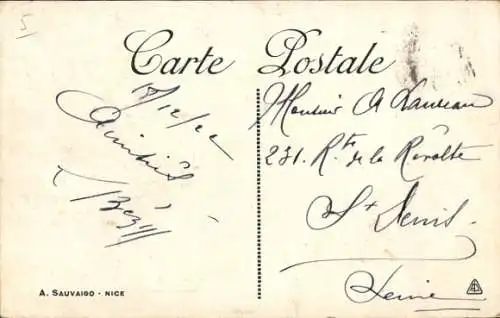 5
Carte Postale
18/12/22
Amitiés
Monsieur A Landeau
231. Rte de la Révolte
St Denis
Seine
A. SAUVAIGO - NICE